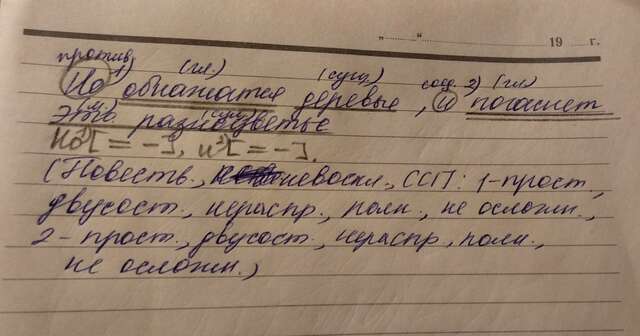 „ “ 19 г.
против. 1) (гл.) (сущ.) соед. 2) (гл.)
Но обнажатся деревья, и погаснет
(сущ.)
это разноцветье
Но¹[= –], и²[= –].
(Повеств., невоскл., ССП: 1-прост.,
двусост., нераспр., полн., не осложн.,
2-прост., двусост., нераспр., полн.,
не осложн.)